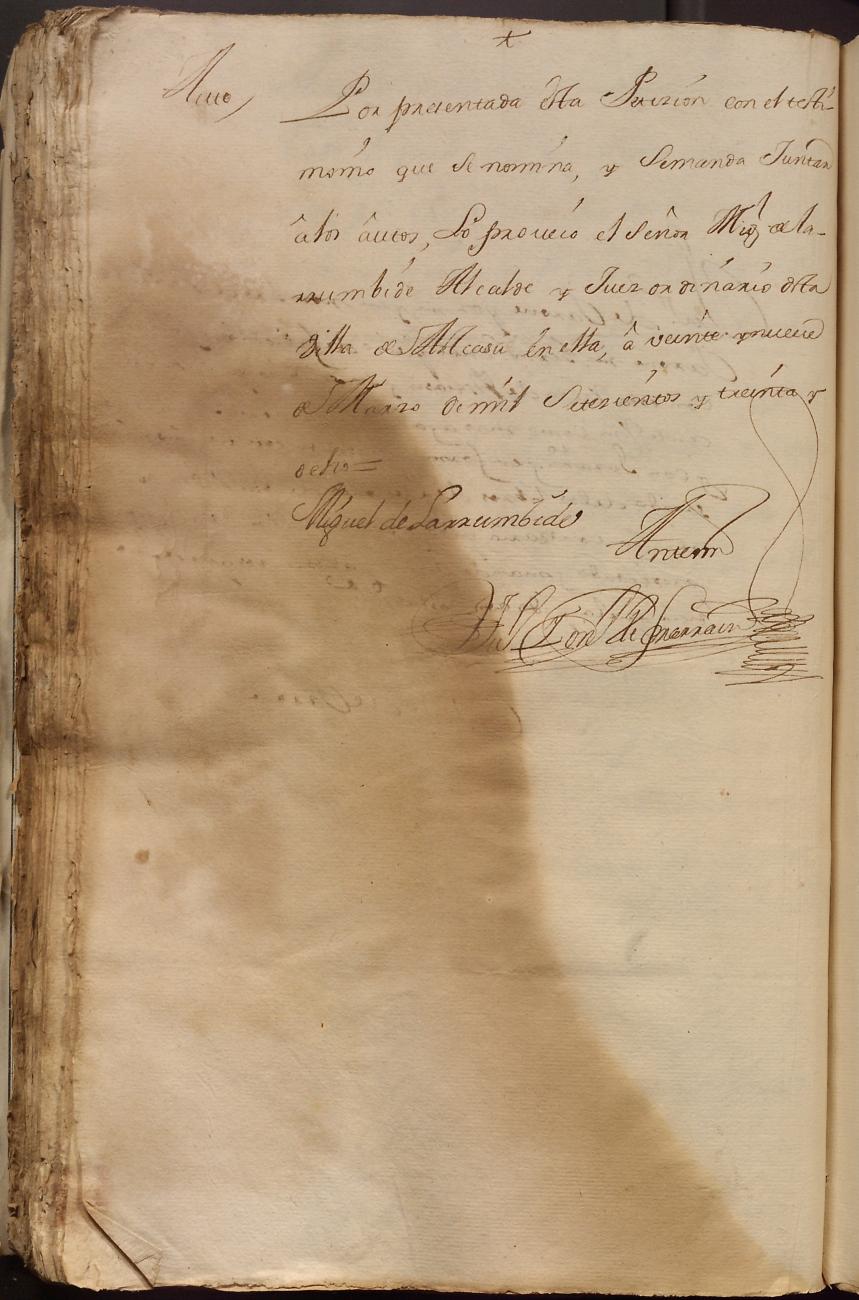 +
Auto,
Por presentada esta Peticion con el testi-
monio que se nomina, y Semanda Juntar
â los âutos, Lo proveio el Señor Mig.l de la-
rrumbide Alcalde y Juez ordinario desta
Villa de en ella, â veinte y nueve
de Marzo de mil Setezientos y treinta y
ocho =
Miguel de Larrumbide
Antemi
de